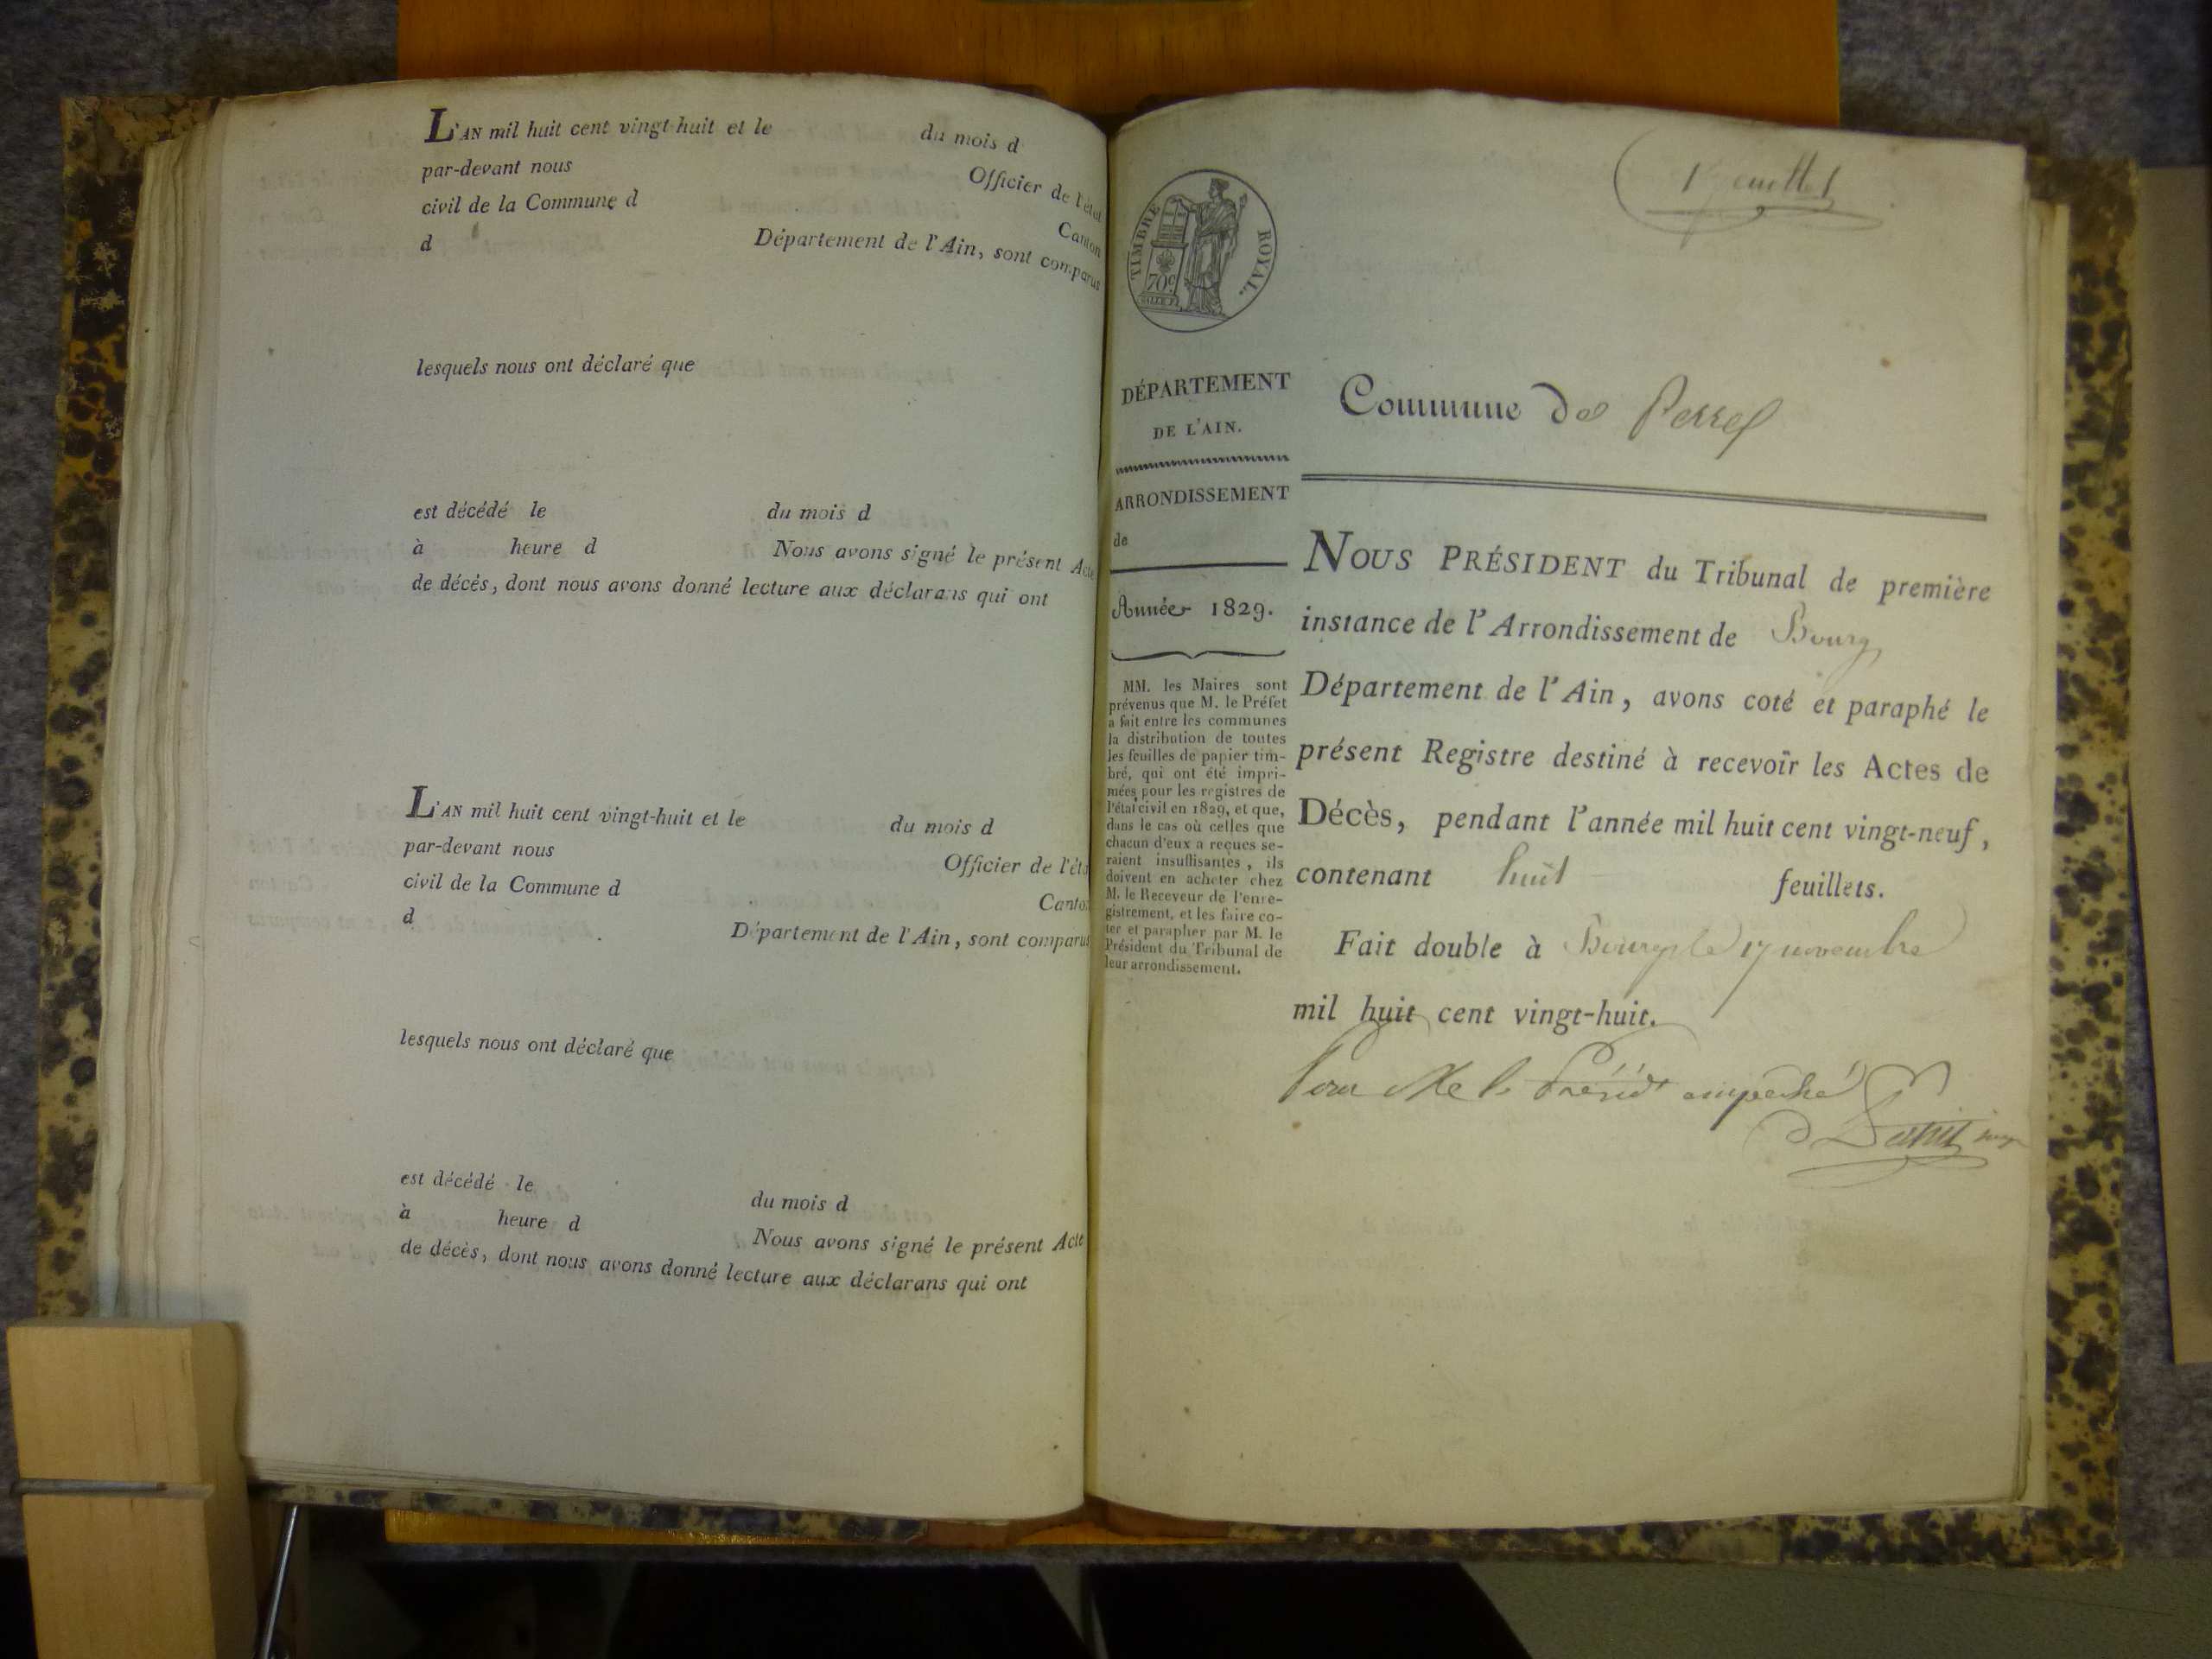 L'AN mil huit cent vingt-huit et le du mois d
par-devant nous Officier de l'état
civil de la Commune d Canton
d Département de l'Ain, sont comparus
lesquels nous ont déclaré que
est décédé le du mois d
à heure d Nous avons signé le présent Acte
de décès, dont nous avons donné lecture aux déclarans qui ont
L'AN mil huit cent vingt-huit et le du mois d
par-devant nous Officier de l'éta
civil de la Commune d Canton
d Département de l'Ain, sont comparus
lesquels nous ont déclaré que
est décédé le du mois d
à heure d Nous avons signé le présent Acte
de décès, dont nous avons donné lecture aux déclarans qui ont
TIMBRE ROYAL.
70c.
DÉPARTEMENT
DE L'AIN.
ARRONDISSEMENT
de
Année 1829.
MM. les Maires sont
prévenus que M. le Préfet
a fait entre les communes
la distribution de toutes
les feuilles de papier tim-
bré, qui ont été impri-
mées pour les registres de
l'état civil en 1829, et que,
dans le cas où celles que
chacun d'eux a reçues se-
raient insuffisantes, ils
doivent en acheter chez
M. le Receveur de l'enre-
gistrement, et les faire co-
ter et parapher par M. le
Président du Tribunal de
leur arrondissement.
Commune de Perrex
NOUS PRÉSIDENT du Tribunal de première
instance de l'Arrondissement de Bourg
Département de l'Ain, avons coté et paraphé le
présent Registre destiné à recevoir les Actes de
Décès, pendant l'année mil huit cent vingt-neuf,
contenant huit feuillets.
Fait double à Bourg le 17 novembre
mil huit cent vingt-huit.
Pour Mr le Présidt empêché
juge